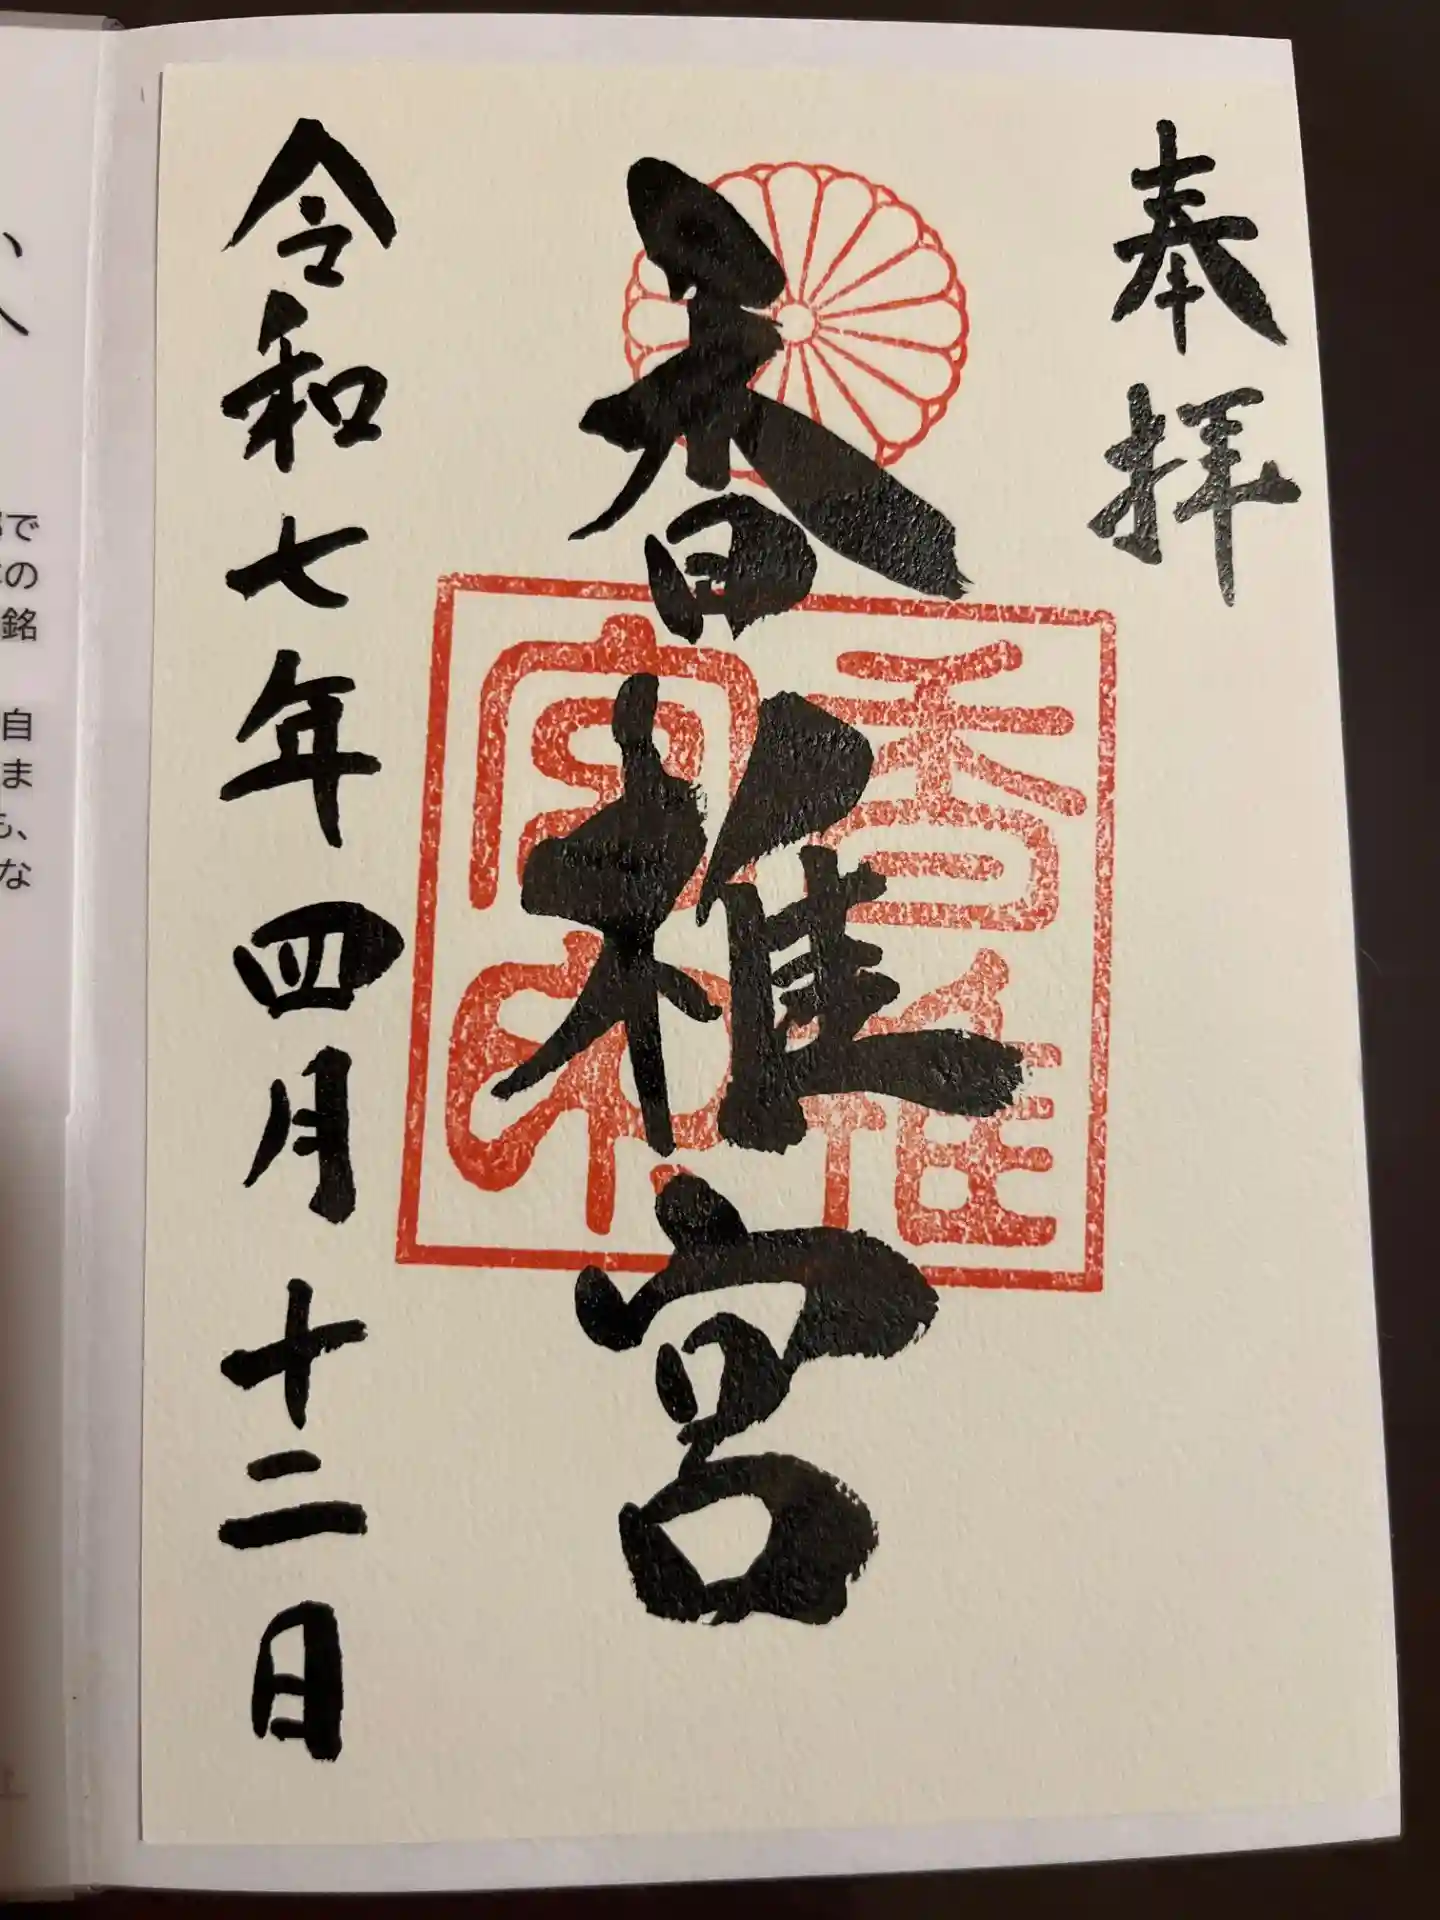 奉拝
香椎宮
香椎宮印
令和七年四月十二日
で
の
銘
自
ま
も、
な